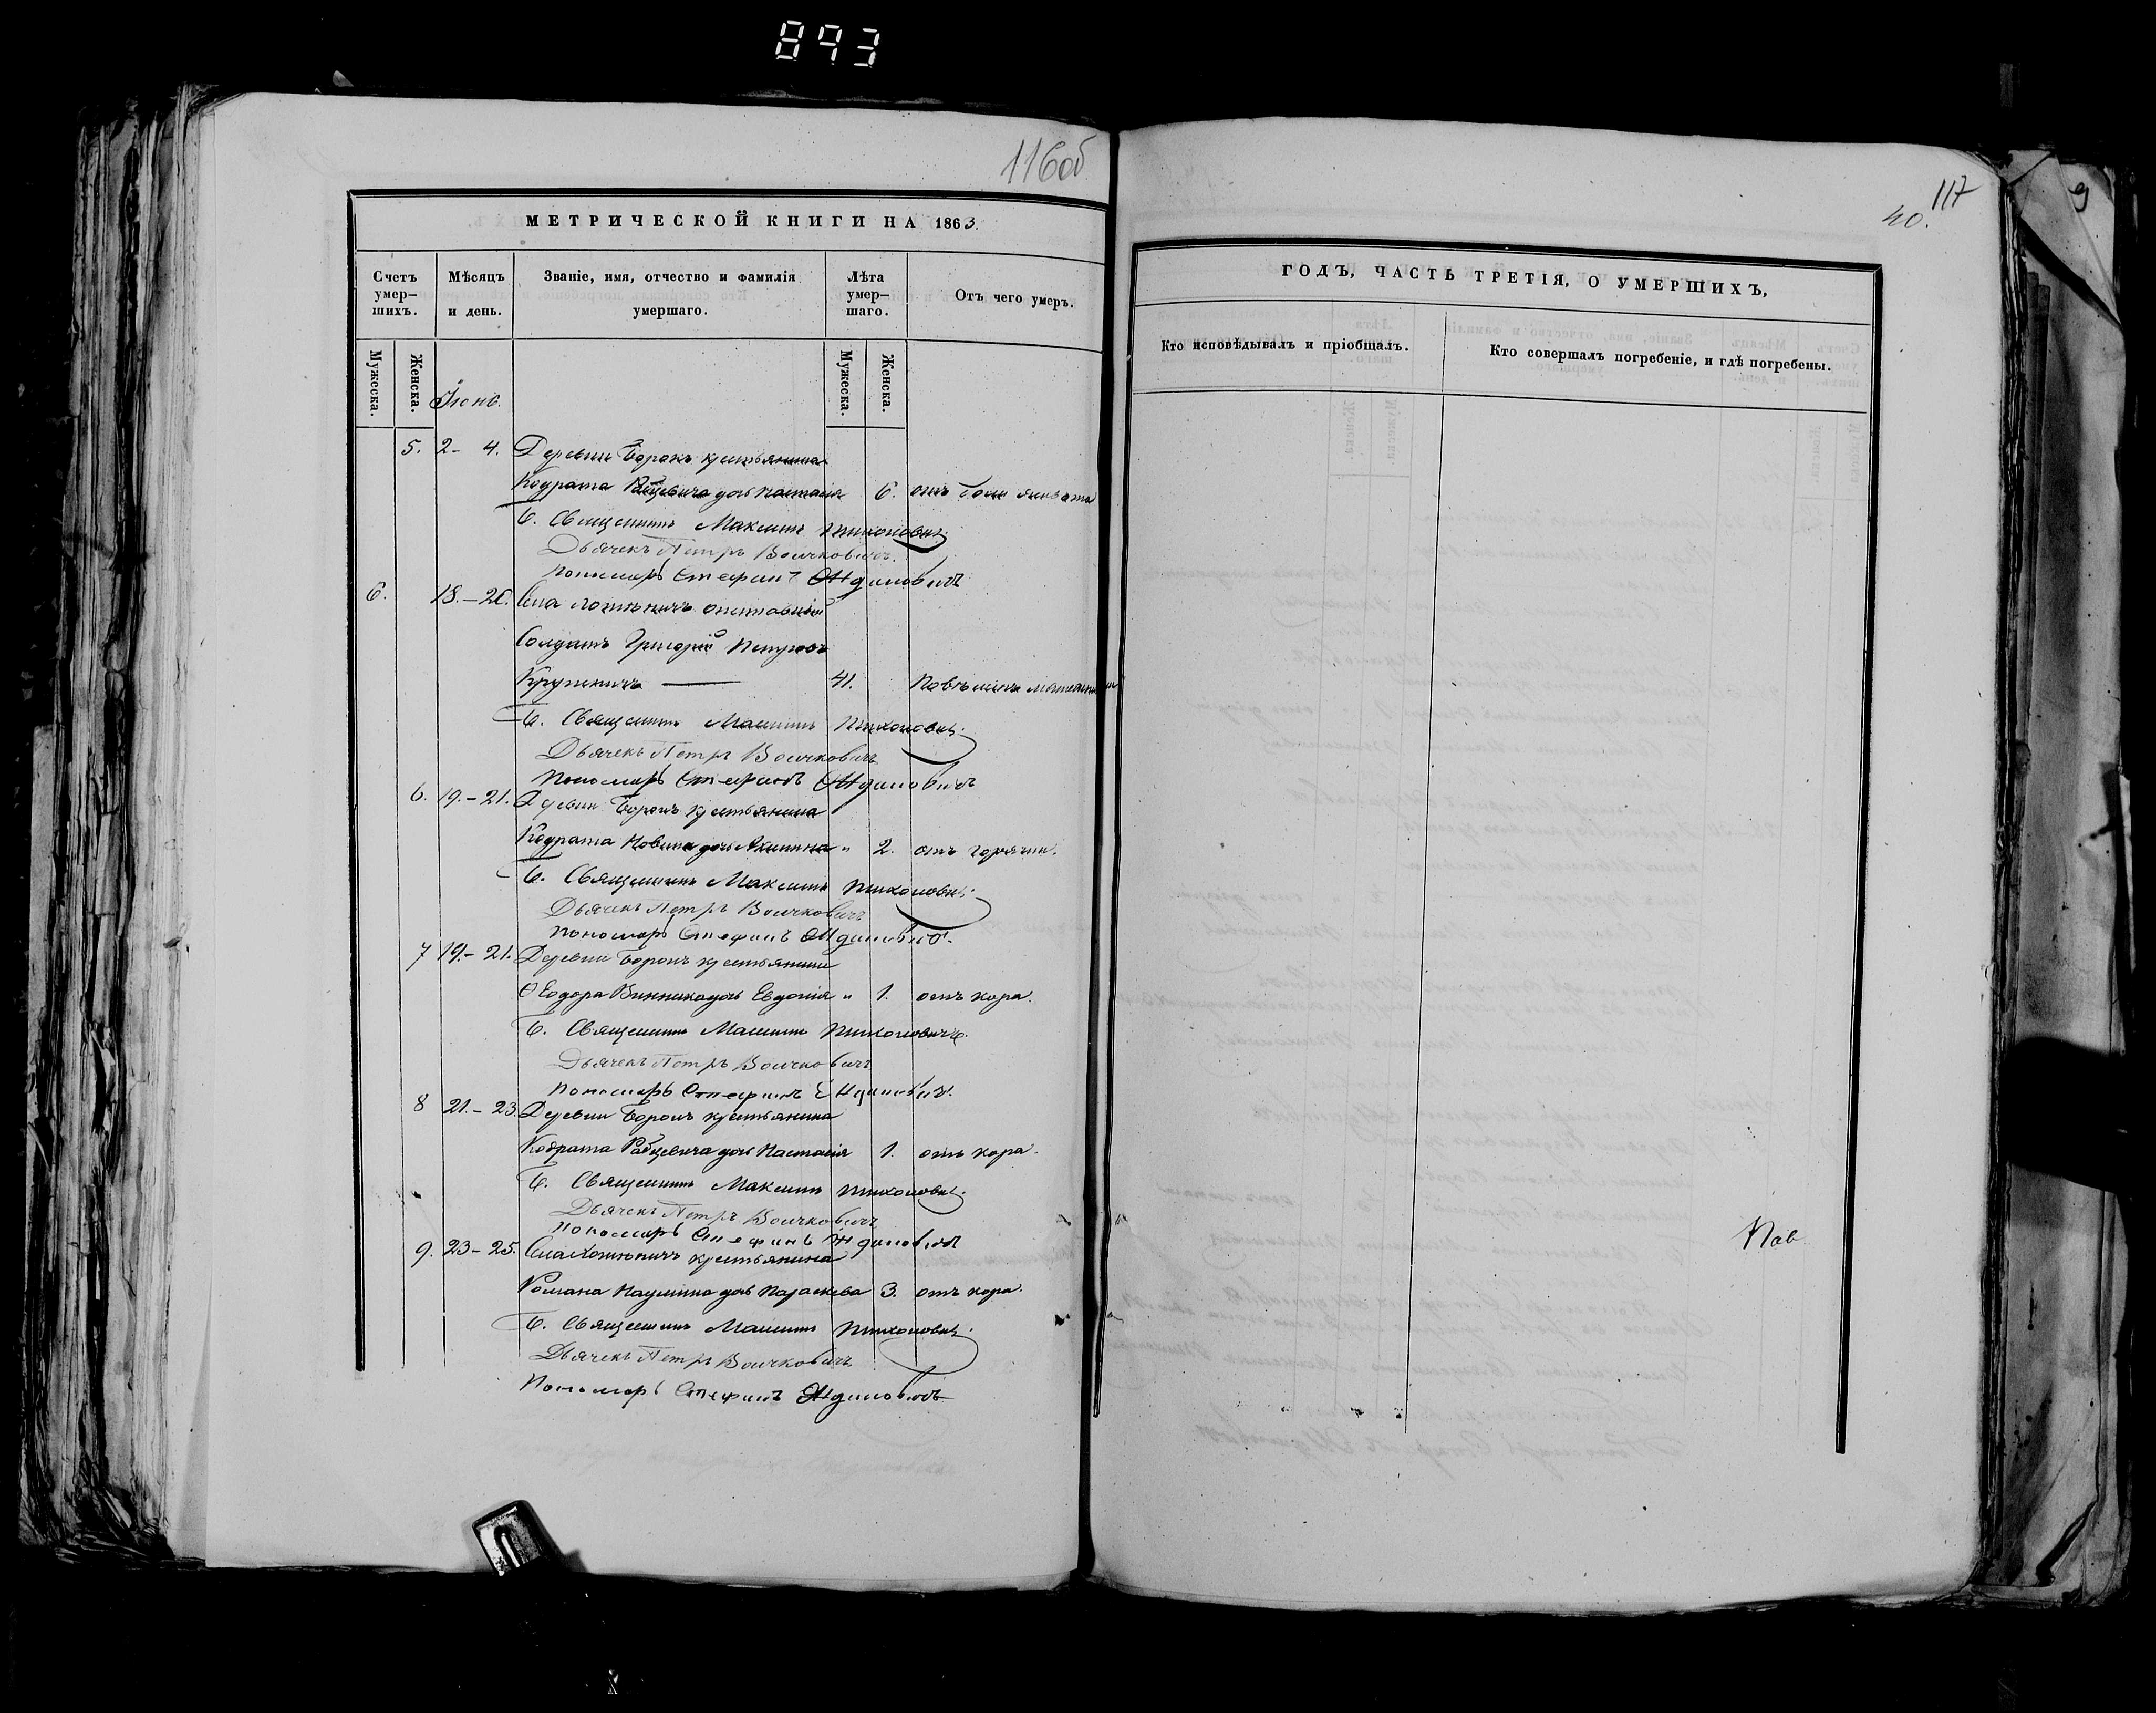 893
116об
МЕТРИЧЕСКОЙ КНИГИ НА 1863.
Счетъ умер-шихъ.
Мѣсяцъ и день.
Званіе, имя, отчество и фамилія умершаго.
Лѣта умер-шаго.
Отъ чего умеръ.
Мужеска.
Женска.
Мужеска.
Женска.
Іюнь.
5. 2- 4. Деревни Борокъ крестьянина
Кодрата Рабцевича дочь Настасія 6. отъ боли живота
Священникъ Максимъ Тихоновичъ
Дьячекъ Петръ Воичковичъ
Пономарь Стефанъ Ждановичъ
6. 18.-20. Села отставный
Солдатъ Григорій Петровъ
Крупеничъ 41.
Священникъ Максимъ Тихоновичъ
Дьячекъ Петръ Воичковичъ
Пономарь Стефанъ Ждановичъ
6. 19.-21. Деревни Борокъ крестьянина
Кодрата Новика дочь Акилина " 2. отъ горячки.
Священникъ Максимъ Тихоновичъ
Дьячекъ Петръ Воичковичъ
Пономарь Стефанъ Ждановичъ
7 19.- 21. Деревни Борокъ крестьянина
Ѳеодора Винника дочь Евдокія " 1. отъ кора.
Священникъ Максимъ Тихоновичъ
Дьячекъ Петръ Воичковичъ
Пономарь Стефанъ Ждановичъ
8 21.- 23. Деревни Борокъ крестьянина
Кодрата Рабцевича дочь Настасія 1. отъ кора.
Священникъ Максимъ Тихоновичъ
Дьячекъ Петръ Воичковичъ
Пономарь Стефанъ Ждановичъ
9. 23- 25. Села крестьянина
Романа дочь Параскева 3. отъ кора.
Священникъ Максимъ Тихоновичъ
Дьячекъ Петръ Воичковичъ
Пономарь Стефанъ Ждановичъ
117
40.
9
ГОДЪ, ЧАСТЬ ТРЕТІЯ, О УМЕРШИХЪ,
Кто исповѣдывалъ и пріобщалъ.
Кто совершалъ погребеніе, и гдѣ погребены.
Пав